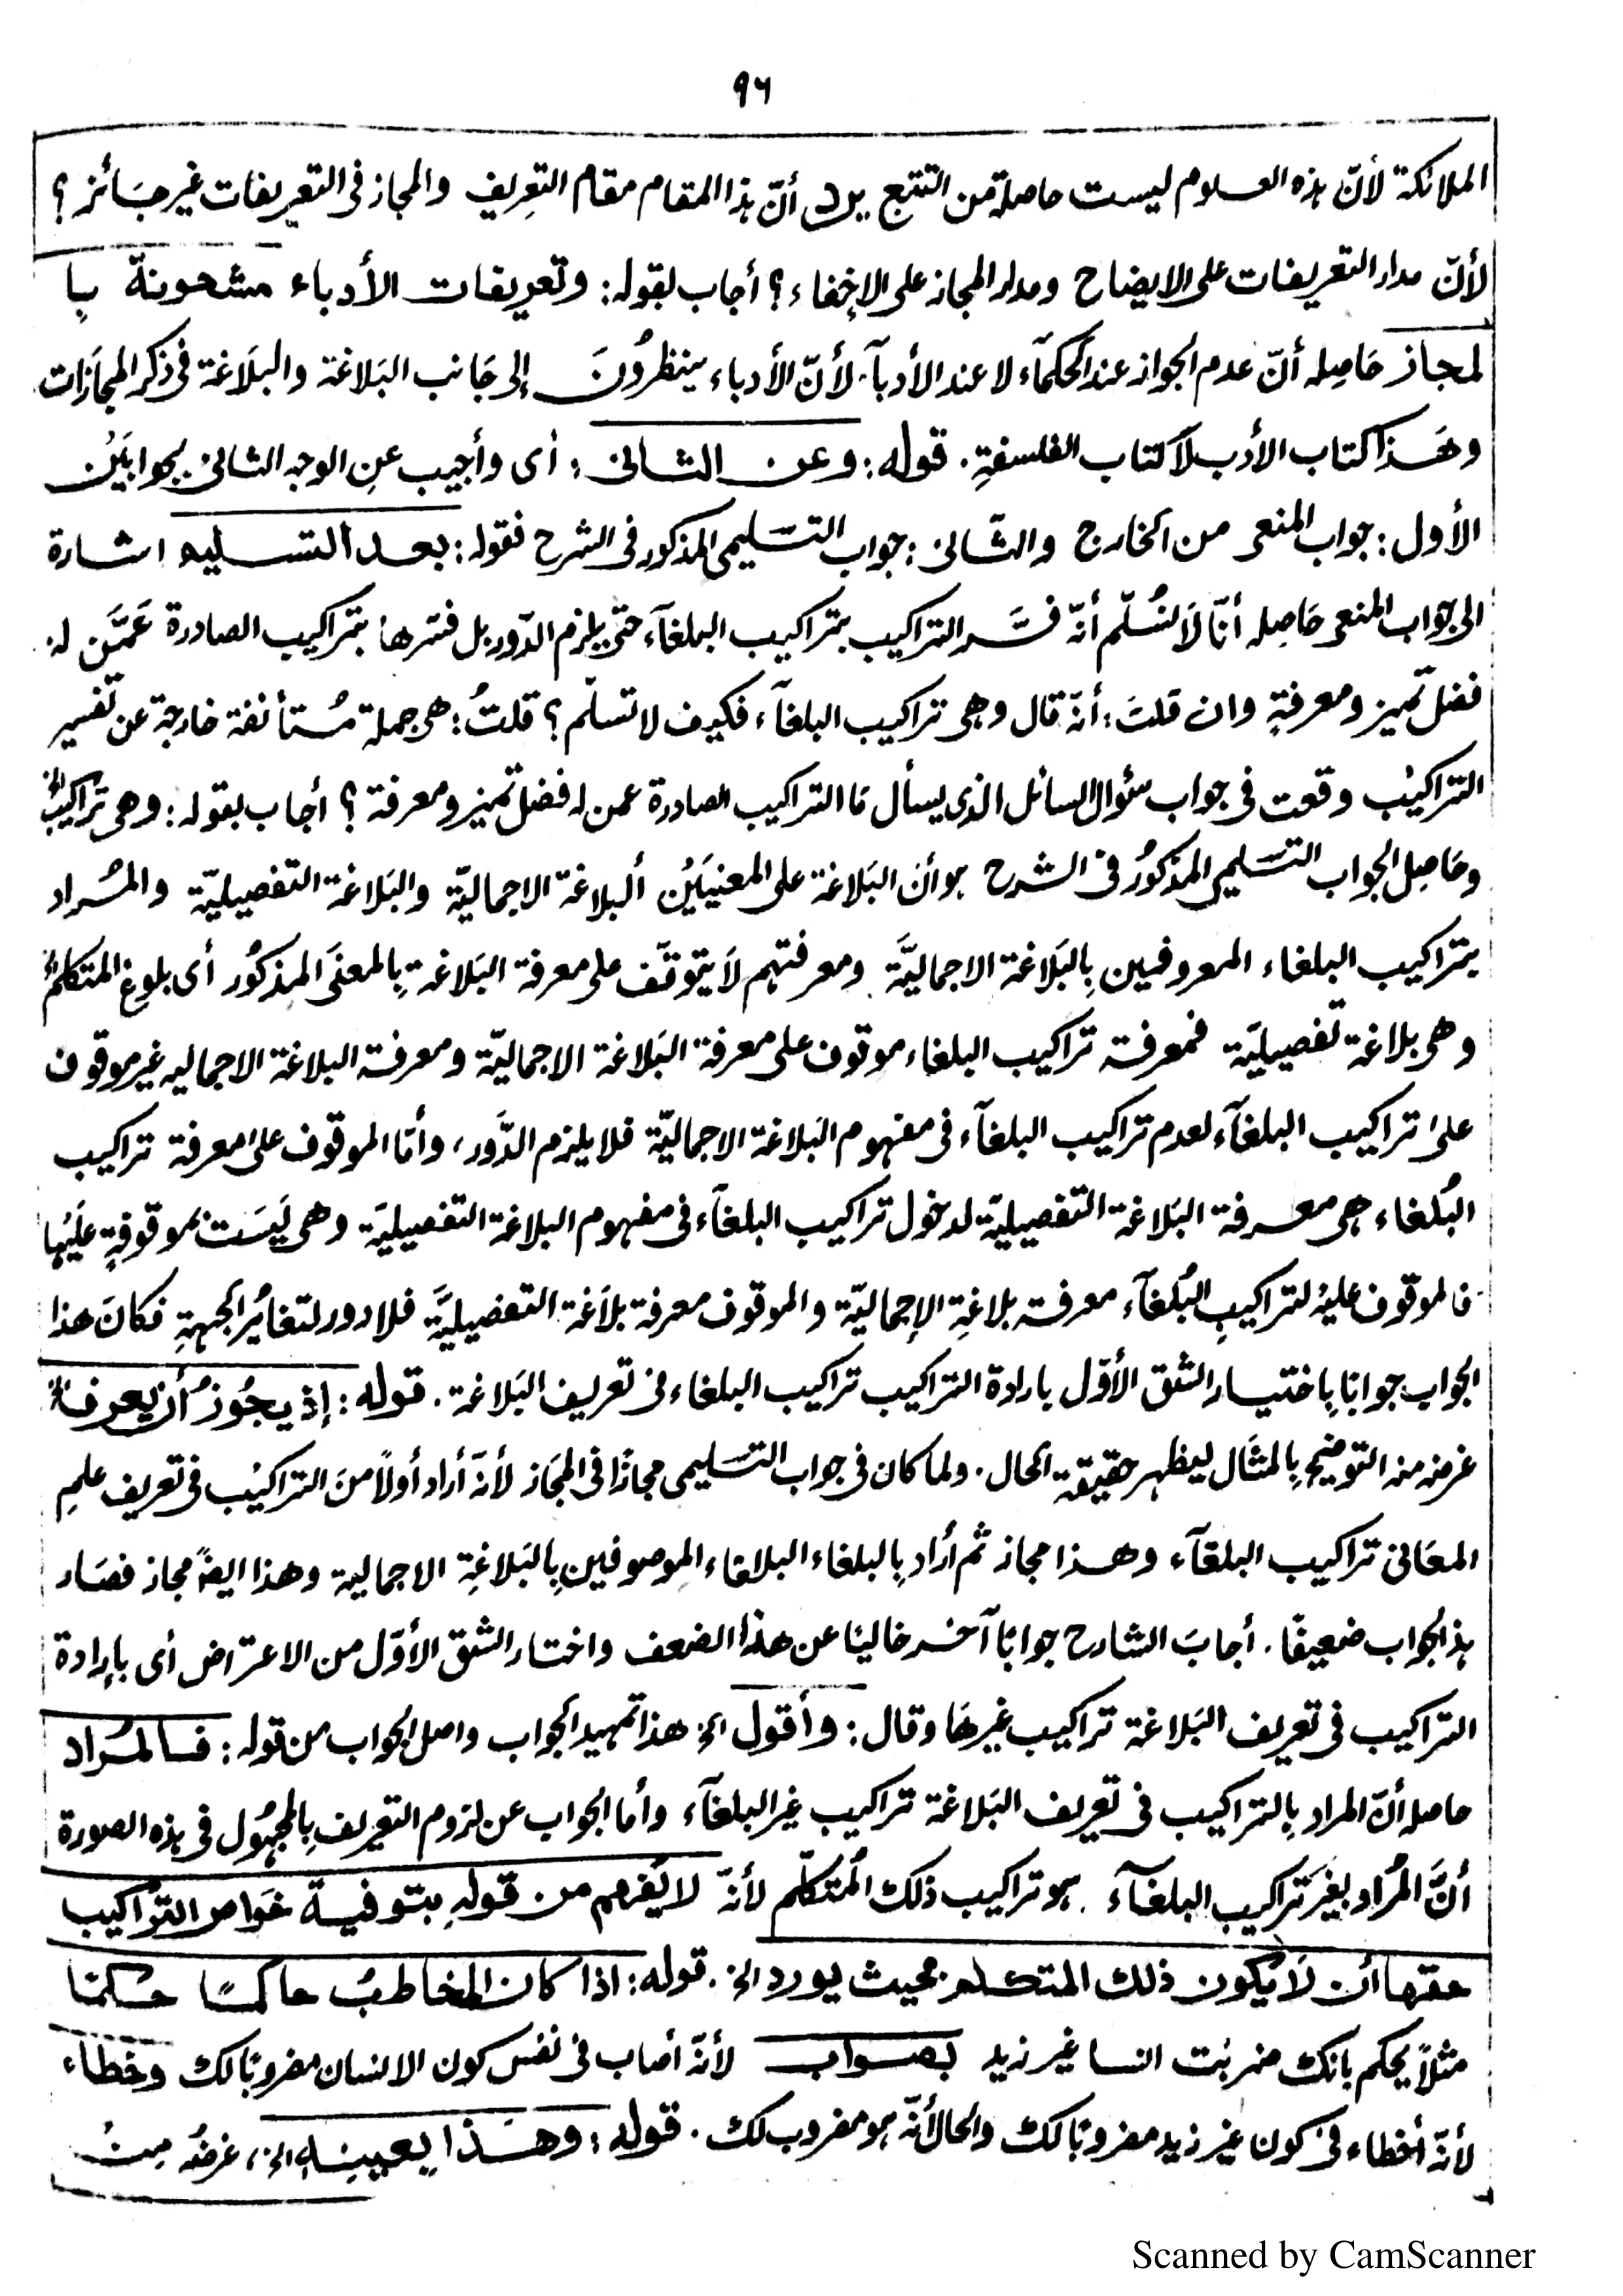 ٩٦
الملائكة لأنّ هذه العلوم ليست حاصلة من التتبع يرد أنّ هذا المقام مقام التعرِيف والمجاز فى التعريفات غير جَائز ؟
لأنّ مدار التعريفات على الايضاح ومدار المجاز على الاِخفاء ؟ أجاب بقوله : وتعريفات الأدباء مشحونة بِا
لمجاز حَاصِله أنّ عدم الجواز عند الحكمآء لا عند الأدبآء لأنّ الأدباء ينظرُونَ إلى جَانب البَلاغة والبلَاغة فى ذكر المجَازات
وهَذا كتاب الأدب لَا كتاب الفلسفةِ . قوله : وعن الثانى : أى وأجيب عنِ الوجه الثانى بجوابَيْن
الأول : جواب المنعى من الخارج والثّانى : جواب التسَليمى المذكور فى الشرح فقوله : بعد التسليم اشارة
الى جوَاب المنعى حَاصِله أنّا لَا نُسُلّم أنّه فسَّر التراكيب بتراكيب البلغآء حتى يلزم الدّور بل فسّرها بتراكيب الصادرة عَمَّن له
فضل تميز ومعرفةٍ وان قلتَ : أنّه قال وهى تراكيب البلغآء فكيف لا تسلّم ؟ قلتُ : هى جملة مُستأنفة خارجة عن تفسير
التراكيْب وقعت فى جواب سُؤال السائل الذى يسأل مَا التراكيب الصادرة عمن له فضل تميز ومعرفة ؟ أجاب بقوله : وهى تراكيبُ الخ
وحَاصِل الجواب التسَليمى المذكُورُ فى الشرح هو أن البَلاغة على المعنيَيْن ألبلاغة الاجماليّة والبَلاغة التفصيليّة والمُراد
بتراكيب البلغاء المعروفين بِالبَلاغة الاجماليَّة ومعرفتهم لَا يتوقّف على معرفة البَلاغة بِالمعنَى المذكُور أى بلوغ المتكلم الخ
وهى بلاغة تفصيليّة فمعرفة تراكيب البلغاء موقوف على معرفة البَلاغة الاجماليّة ومعرفة البلاغة الاجماليه غير موقوف
على تراكيب البلغآء لعدم تراكيب البلغآء فى مفهوم البَلاغة الاجماليّة فلا يلزم الدّور ، وأمّا الموقوف على معرفة تراكيب
البُلغاء هى معرفة البَلاغة التفصيليّة لدخول تراكيب البلغآء فى مفهوم البلاغة التفصيليّة وهى لَيسَت بموقوفةٍ عَليْها
فالموقوف عليْه لتراكيبِ البُلغآء معرفة بلاغةِ الاِجماليّة والموقوف معرفة بلَاغة التفصيليَّة فلا دور لتغايُر الجهةِ فكانَ هذا
الجواب جوابًا بِاختيار الشق الأوّل بارادة التراكيب تراكيب البلغاء فى تعريف البَلاغة . قوله : إذ يجُوزُ أن يعرف الخ
غرضه منه التوضيح بِالمثَال ليظهر حقيقة الحال . ولما كان فى جواب التسَليمى مجازًا فى المجَاز لأنّه أراد أولًا منَ التراكيْب فى تعريف علمِ
المعَانى تراكيب البلغآء وهذا مجاز ثم أرَاد بِالبلغاء البلاغاء الموصوفينِ بِالبَلاغةِ الاجمالية وهذا ايضًا مجاز فصَار
هذ الجواب ضعيفًا . أجابَ الشارح جوابًا آخر خاليًا عن هذا الضعف واختار الشق الأوّل من الاعتراض أى بارادة
التراكيب فى تعريف البَلاغة تراكيب غيرهَا وقال : وأقول الخ هذا تمهيد الجواب واصل الجواب من قوله : فالمُراد
حاصله أنّ المراد بِالتراكيب فى تعريف البَلاغة تراكيب غير البلغآء وأما الجواب عن لزوم التعريف بِالمجهُول فى هذه الصورة
أنَّ المُراد بغيَر تَراكيب البلغآء هو تراكيب ذلك المُتكلّم لأنّه لا يُفهم من قولهِ بتوفية خوَاص التَّراكيب
حقها أن لَا يكُون ذلك المتكلم بحيث يورد الخ . قوله : اذا كان المخاطبُ حاكمًا حُكمًا
مثلًا يحكم بانك ضربْت انسا غير زيد بصواب لأنّه أصاب فى نفس كون الانسان مضروبًا لك وخطاء
لأنّه أخطاء فى كون غير زيد مضروبًا لك والحال أنّه هو مضروب لك . قوله : وهَذا يعينه الخ ، غرضُه مِنْ
Scanned by CamScanner